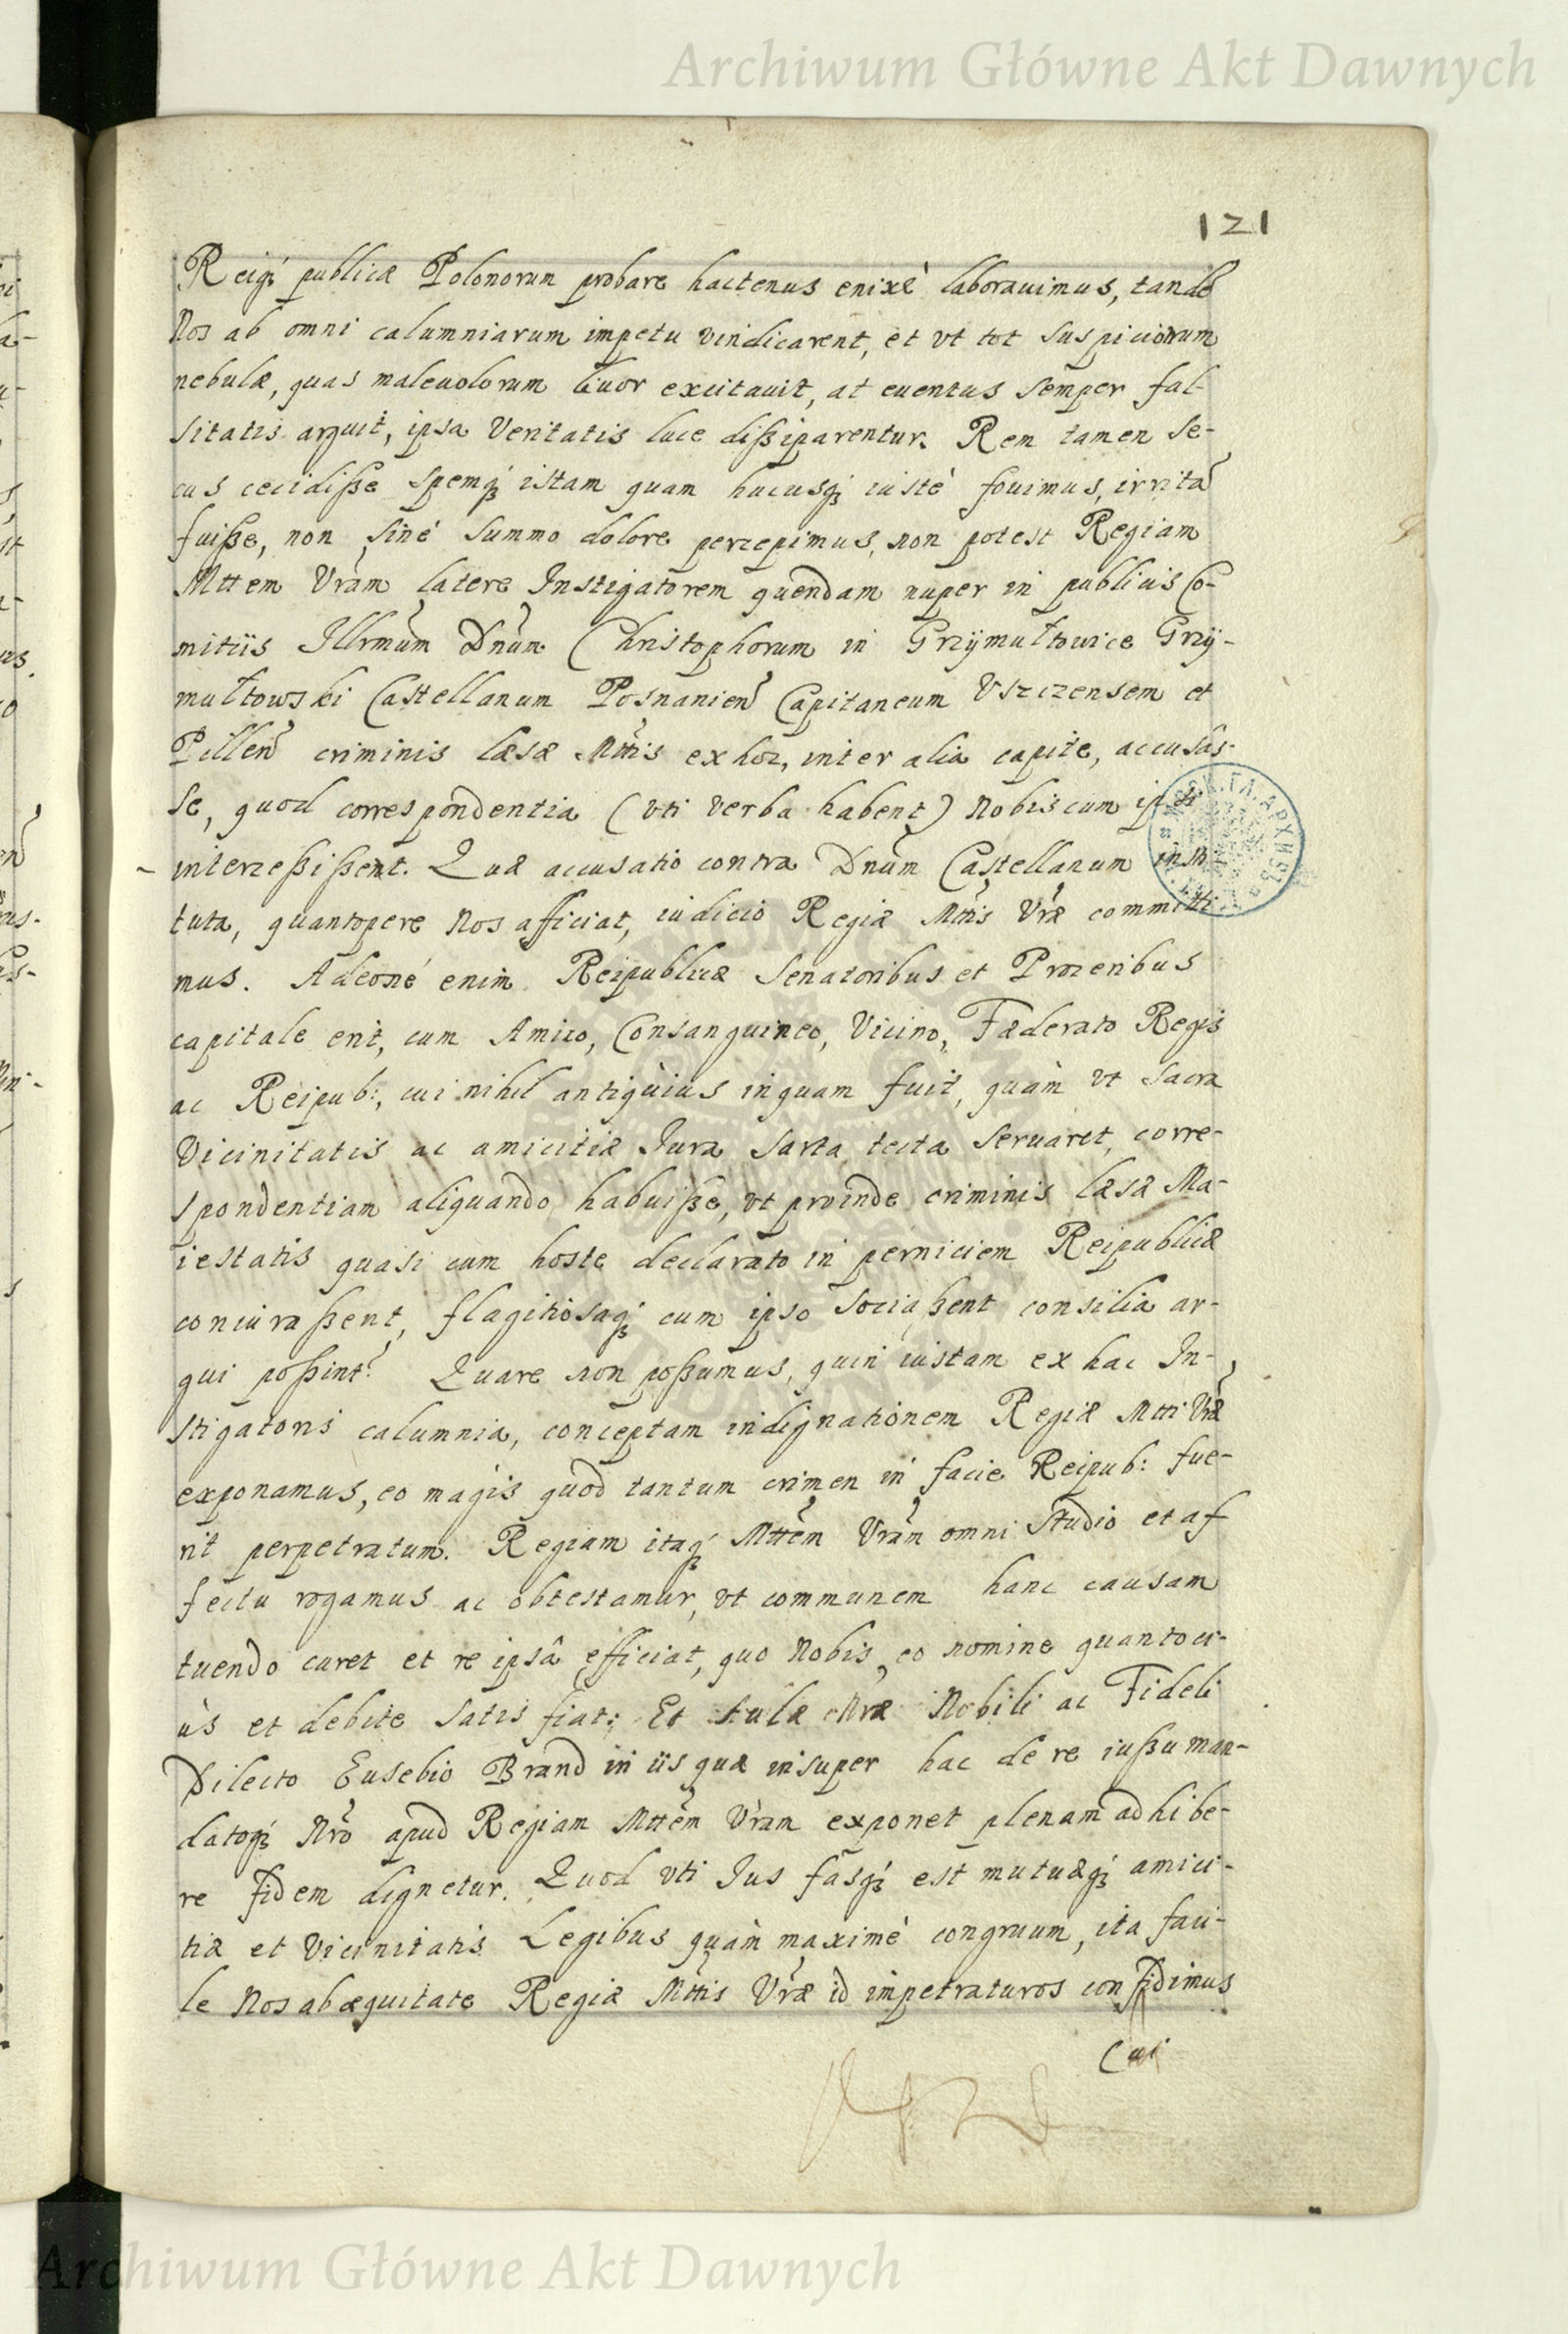 Archiwum Główne Akt Dawnych
121
Reiqȝ publicæ Polonorum probare hactenus enixè laborauimus, tandē
Nos ab omni calumniarum impetu vindicarent, et vt tot suspicionum
nebulæ, quas maleuolorum liuor excitauit, at euentus semper fal-
sitatis arguit, ipsa Veritatis luce dißiparentur. Rem tamen se-
cus cecidiße spemqȝ istam quam hucusqȝ iustè fouimus, irritā
fuiße, non sinè summo dolore percepimus, non potest Regiam
Mttem Vrām latere Instigatorem quendam nuper in publicis Co-
mitiis Illrmūm Dnūm Christophorum in Grzÿmułtowice Grzÿ-
mułtowski Castellanum Posnanień Capitaneum Vszczensem et
Pilleń criminis læsæ Mttis ex hoc, inter alia capite, accusas-
se, quod correspondentia (vti verba habent) Nobiscum ipsi
interceßißent. Quæ accusatio contra Dnūm Castellanum insti
tuta, quantopere Nos afficiat, iudicio Regiæ Mttis Vræ committi
mus. Adeonè enim Reipublicæ Senatoribus et Proceribus
capitale erit, cum Amico, Consanguineo, Vicino, Fæderato Regis
ac Reipub:, cui nihil antiquius inquam fuit, quàm vt sacra
Vicinitatis ac amicitiæ Jura sarta tecta seruaret, corre-
spondentiam aliquando habuiße, vt proinde criminis læsæ Ma-
iestatis quasi cum hoste declarato in perniciem Reipublicæ
coniuraßent, flagitiosaqȝ cum ipso sociaßent consilia ar-
gui poßint? Quare non poßumus, quin iustam ex hac In-
stigatoris calumnia, conceptam indignationem Regiæ Mtti Vræ
exponamus, eo magis quod tantum crimen in facie Reipub: fue-
rit perpetratum. Regiam itaqȝ Mttēm Vrām omni studio et af
fectu rogamus ac obtestamur, vt communem hanc causam
tuendo curet et re ipsâ efficiat, quo Nobis eo nomine quantoci-
ùs et debite satis fiat; Et Aulæ Nræ Nobili ac Fideli
Dilecto Eusebio Brand in iis quæ insuper hac de re iußu man-
datoqȝ Nrō apud Regiam Mttēm Vrām exponet plenam adhibe-
re fidem dignetur. Quod vti Jus fasqȝ est mutuæqȝ amici-
tiæ et Vicinitatis Legibus quàm maximè congruum, ita faci-
le Nos ab æquitate Regiæ Mttis Vræ id impetraturos confidimus
Cui
Archiwum Główne Akt Dawnych